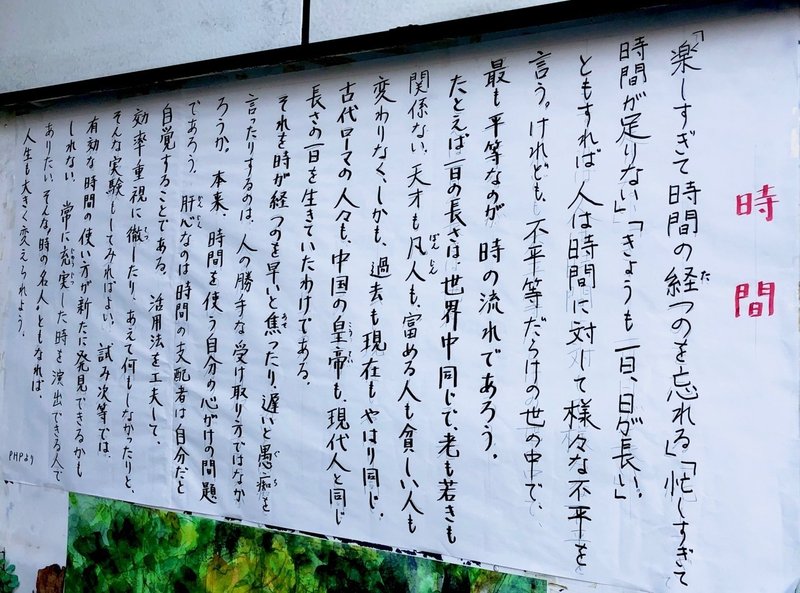 時間
「楽しすぎて時間の経つのを忘れる」「忙しすぎて
時間が足りない」「きょうも一日、日が長い」。
ともすれば人は時間に対して様々な不平を
言う。けれども、不平等だらけの世の中で、
最も平等なのが時の流れであろう。
たとえば一日の長さは世界中同じで、老も若きも
関係ない。天才も凡人も、富める人も貧しい人も
変わりなく、しかも、過去も現在もやはり同じ。
古代ローマの人々も、中国の皇帝も、現代人と同じ
長さの一日を生きていたわけである。
それを時が経つのを早いと焦ったり、遅いと愚痴を
言ったりするのは、人の勝手な受け取り方ではなか
ろうか。本来、時間を使う自分の心がけの問題
であろう。肝心なのは時間の支配者は自分だと
自覚することである。活用法を工夫して、
効率重視に徹したり、あえて何もしなかったりと、
そんな実験もしてみればよい。試み次第では、
有効な時間の使い方が新たに発見できるかも
しれない。常に充実した時を演出できる人で
ありたい。そんな“時の名人”ともなれば、
人生も大きく変えられよう。
PHPより